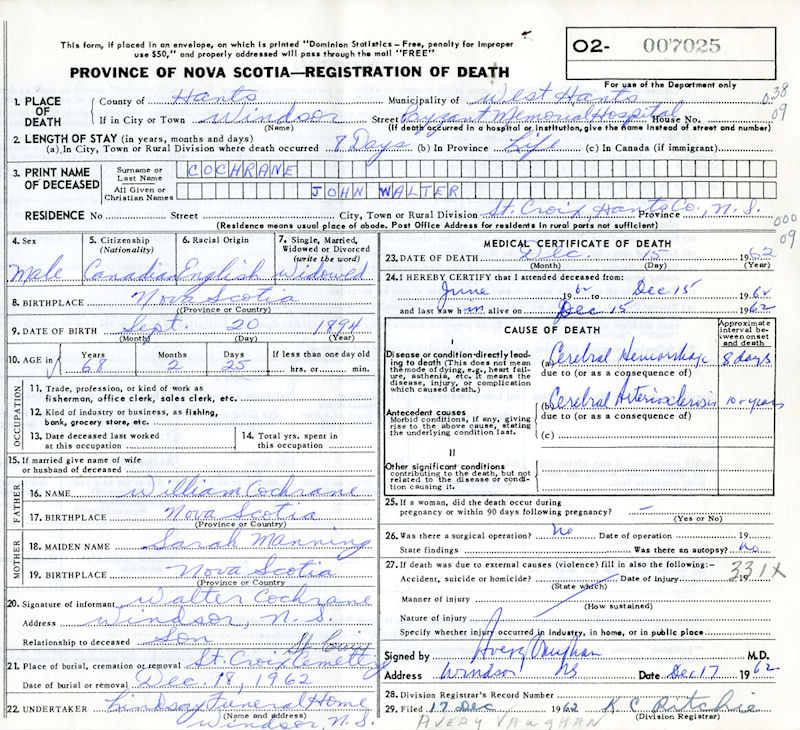 This form, if placed in an envelope, on which is printed "Dominion Statistics – Free, penalty for improper
use $50," and properly addressed will pass through the mail "FREE"
O2- 007025
PROVINCE OF NOVA SCOTIA—REGISTRATION OF DEATH
For use of the Department only
1. PLACE OF DEATH County of Hants Municipality of West Hants 0.38
If in City or Town Windsor (Name) Street Payzant Memorial Hospital House No. 09
(If death occurred in a hospital or institution, give the name instead of street and number)
2. LENGTH OF STAY (in years, months and days)
(a) In City, Town or Rural Division where death occurred 8 Days (b) In Province Life (c) In Canada (if immigrant)
3. PRINT NAME OF DECEASED Surname or Last Name COCHRANE
All Given or Christian Names JOHN WALTER
RESIDENCE No Street City, Town or Rural Division St. Croix, Hants Co., Province N.S. 000
(Residence means usual place of abode. Post Office Address for residents in rural parts not sufficient) 09
4. Sex 5. Citizenship (Nationality) 6. Racial Origin 7. Single, Married, Widowed or Divorced (write the word)
Male Canadian English Widowed
8. BIRTHPLACE Nova Scotia
(Province or Country)
9. DATE OF BIRTH Sept. 20 1894
(Month) (Day) (Year)
10. AGE in Years Months Days If less than one day old
68 2 25 hrs. or min.
OCCUPATION
11. Trade, profession, or kind of work as
fisherman, office clerk, sales clerk, etc.
12. Kind of industry or business, as fishing,
bank, grocery store, etc.
13. Date deceased last worked
at this occupation
14. Total yrs. spent in
this occupation
15. If married give name of wife
or husband of deceased
FATHER
16. NAME William Cochrane
17. BIRTHPLACE Nova Scotia
(Province or Country)
MOTHER
18. MAIDEN NAME Sarah Manning
19. BIRTHPLACE Nova Scotia
(Province or Country)
20. Signature of informant Walter Cochrane
Address Windsor, N.S.
Relationship to deceased Son
St. Croix
21. Place of burial, cremation or removal St. Croix Cemetery
Date of burial or removal Dec. 18, 1962
22. UNDERTAKER Lindsay Funeral Home
(Name and address)
Windsor, N.S.
MEDICAL CERTIFICATE OF DEATH
23. DATE OF DEATH Dec. 15 1962
(Month) (Day) (Year)
24. I HEREBY CERTIFY that I attended deceased from:
June 1962 to Dec 15 1962
and last saw him alive on Dec 15 1962
CAUSE OF DEATH
Approximate interval between onset and death
I
Disease or condition directly leading to death (This does not mean
the mode of dying, e.g., heart failure, asthenia, etc. It means the
disease, injury, or complication
which caused death.)
(a) Cerebral Hemorrhage 8 days
due to (or as a consequence of)
Antecedent causes
Morbid conditions, if any, giving
rise to the above cause, stating
the underlying condition last.
(b) Cerebral Arteriosclerosis 10+ years
due to (or as a consequence of)
(c)
II
Other significant conditions
contributing to the death, but not
related to the disease or condition causing it.
25. If a woman, did the death occur during
pregnancy or within 90 days following pregnancy? –
(Yes or No)
26. Was there a surgical operation? No Date of operation 19
State findings Was there an autopsy? No
27. If death was due to external causes (violence) fill in also the following:–
331X
Accident, suicide or homicide? Date of injury 19
(State which)
Manner of injury
(How sustained)
Nature of injury
Specify whether injury occurred in industry, in home, or in public place
Signed by Avery Vaughan M.D.
Address Windsor NS Date Dec 17 1962
28. Division Registrar's Record Number
29. Filed 17 Dec 1962 K C Ritchie
(Division Registrar)
AVERY VAUGHAN